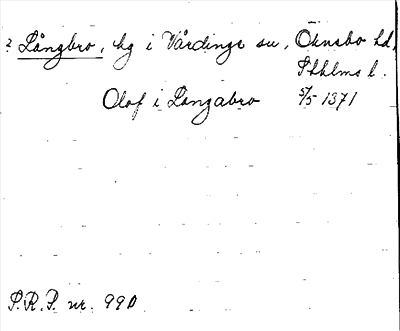 ? Långbro, hg i Vårdinge sn, Öknebo hd,
Sthlms l.
Olof i Langabro 5/5 1371
S.R.P. nr. 990